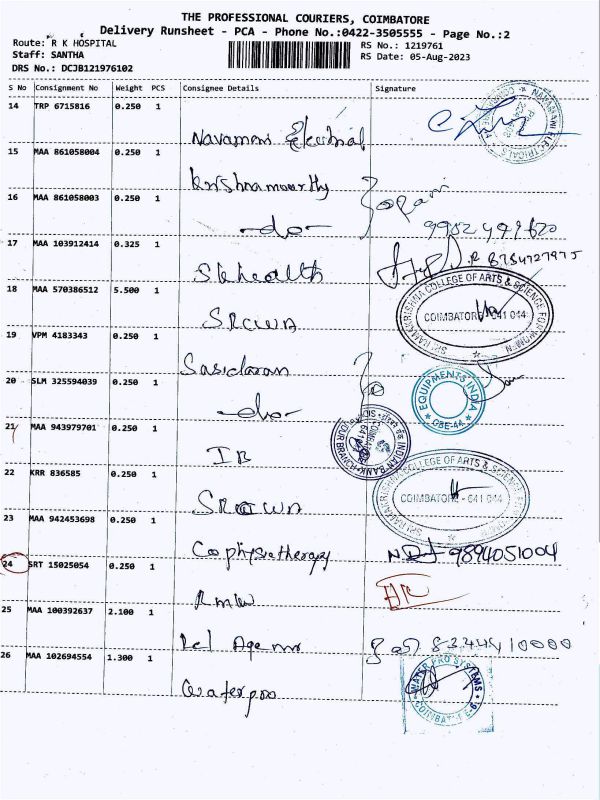 THE PROFESSIONAL COURIERS, COIMBATORE
Delivery Runsheet - PCA - Phone No.:0422-3505555 - Page No.:2
Route: R K HOSPITAL
RS No.: 1219761
Staff: SANTHA
RS Date: 05-Aug-2023
DRS No.: DCJB121976102
S No Consignment No Weight PCS Consignee Details Signature
14 TRP 6715816 0.250 1
Navamani Electrical
15 MAA 861058004 0.250 1
Krishnamoorthy
16 MAA 861058003 0.250 1
-do-
17 MAA 103912414 0.325 1
18 MAA 570386512 5.500 1
SRI RAMAKRISHNA COLLEGE OF ARTS & SCIENCE FOR WOMEN
COIMBATORE - 641 044
SRCWA
19 VPM 4183343 0.250 1
Sasidaran
20 SLM 325594039 0.250 1
EQUIPMENTS INDIA
CBE-44
-do-
21 MAA 943979701 0.250 1
INDIAN BANK
IB
22 KRR 836585 0.250 1
SRI RAMAKRISHNA COLLEGE OF ARTS & SCIENCE FOR WOMEN
COIMBATORE - 641 044
SRCWA
23 MAA 942453698 0.250 1
Cophysiotherapy 9894051004
24 SRT 15025054 0.250 1
25 MAA 100392637 2.100 1
26 MAA 102694554 1.300 1
WATER PRO SYSTEMS
Waterpro